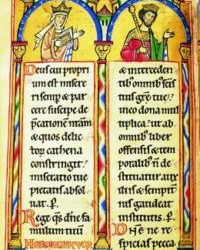 Deus cui propri
um est misere
ri semp & par
cere suscipe de
pcationē nram
& quos delic
torū cathena
constringit
miseratio tue
pietatis absol
uat. p.
Rege qs dne fa
mulum tuū
& interceden
tib omnib
tue
dona mul
tiplica. ut ab
omnib liber
offensis & tem
poralib n de
stituatur auxi
liis & sempit
nis gaudeat
institutis. p.
ne re
spicias pecca